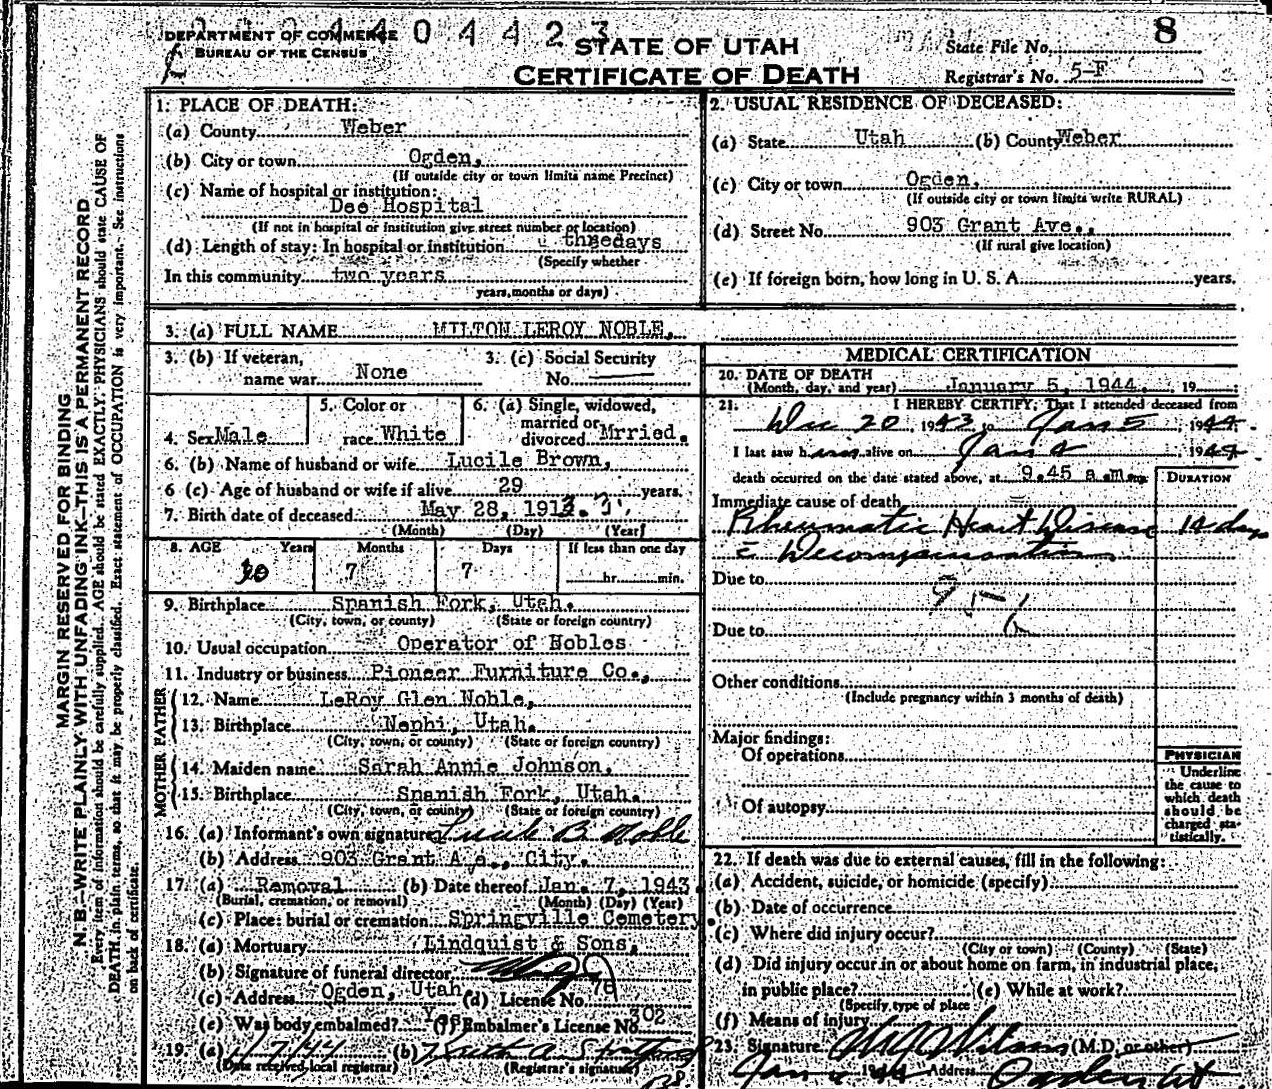 DEPARTMENT OF COMMERCE
BUREAU OF THE CENSUS
4 0 4 4 2 3
STATE OF UTAH
CERTIFICATE OF DEATH
State File No. 8
Registrar's No. 5-F
MARGIN RESERVED FOR BINDING
N. B.—WRITE PLAINLY WITH UNFADING INK—THIS IS A PERMANENT RECORD
Every item of information should be carefully supplied. AGE should be stated EXACTLY. PHYSICIANS should state CAUSE OF
DEATH in plain terms, so that it may be properly classified. Exact statement of OCCUPATION is very important. See instructions
on back of certificate.
1. PLACE OF DEATH:
(a) County Weber
(b) City or town Ogden,
(If outside city or town limits name Precinct)
(c) Name of hospital or institution:
Dee Hospital
(If not in hospital or institution give street number or location)
(d) Length of stay: In hospital or institution threedays
(Specify whether
In this community two years
years, months or days)
2. USUAL RESIDENCE OF DECEASED:
(a) State Utah (b) County Weber
(c) City or town Ogden,
(If outside city or town limits write RURAL)
(d) Street No. 903 Grant Ave.,
(If rural give location)
(e) If foreign born, how long in U. S. A. years.
3. (a) FULL NAME MILTON LEROY NOBLE,
3. (b) If veteran,
name war None
3. (c) Social Security
No.
4. Sex Male
5. Color or
race White
6. (a) Single, widowed,
married or
divorced Mrried.
6. (b) Name of husband or wife Lucile Brown,
6 (c) Age of husband or wife if alive 29 years.
7. Birth date of deceased May 28, 1913.
(Month) (Day) (Year)
8. AGE Years Months Days If less than one day
30 7 7 hr. min.
9. Birthplace Spanish Fork, Utah.
(City, town, or county) (State or foreign country)
10. Usual occupation Operator of Nobles
11. Industry or business Pioneer Furniture Co.,
FATHER
12. Name LeRoy Glen Noble,
13. Birthplace Nephi, Utah.
(City, town, or county) (State or foreign country)
MOTHER
14. Maiden name Sarah Annie Johnson.
15. Birthplace Spanish Fork, Utah.
(City, town, or county) (State or foreign country)
16. (a) Informant's own signature Lucile B Noble
(b) Address 903 Grant Ave., City.
17. (a) Removal (b) Date thereof Jan. 7, 1943
(Burial, cremation, or removal) (Month) (Day) (Year)
(c) Place: burial or cremation Springville Cemetery.
18. (a) Mortuary Lindquist & Sons,
(b) Signature of funeral director
(c) Address Ogden, Utah (d) License No. 76
(e) Was body embalmed? Yes (f) Embalmer's License No. 302
19. (a) 1/7/44 (b)
(Date received local registrar) (Registrar's signature)
MEDICAL CERTIFICATION
20. DATE OF DEATH
(Month, day, and year) January 5, 1944. 19
21. I HEREBY CERTIFY, That I attended deceased from
Dec 20, 1943 to Jan 5, 1944.
I last saw him alive on Jan 4 1944.
death occurred on the date stated above, at 9.45 a.m. m.
DURATION
Immediate cause of death
Rheumatic Heart Disease 14 days
c Decompensation
Due to
95-b
Due to
Other conditions
(Include pregnancy within 3 months of death)
Major findings:
Of operations
Of autopsy
PHYSICIAN
Underline
the cause to
which death
should be
charged sta-
tistically.
22. If death was due to external causes, fill in the following:
(a) Accident, suicide, or homicide (specify)
(b) Date of occurrence
(c) Where did injury occur?
(City or town) (County) (State)
(d) Did injury occur in or about home on farm, in industrial place,
in public place? (e) While at work?
(Specify type of place
(f) Means of injury
23. Signature Wilson (M.D. or other)
Jan 6 1944 Address Ogden Ut